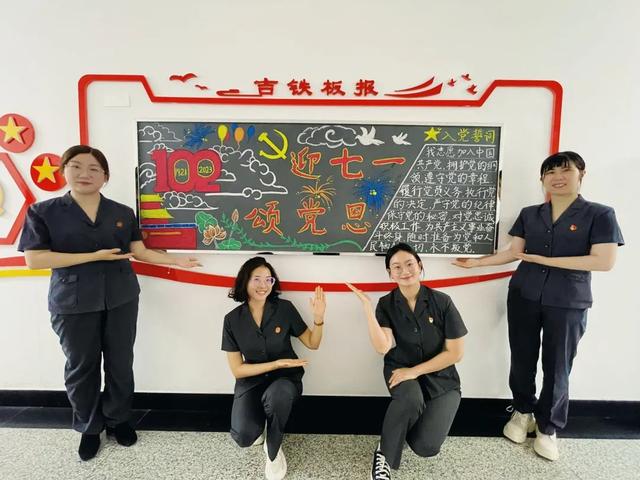 吉铁板报
102
1921
2023
迎七一
颂党恩
入党誓词
我志愿加入中国
共产党,拥护党的纲
领,遵守党的章程,
履行党员义务,执行党
的决定,严守党的纪律,
保守党的秘密,对党忠诚,
积极工作,为共产主义事业奋
斗终身,随时准备为党和人
民 切,永不叛党。